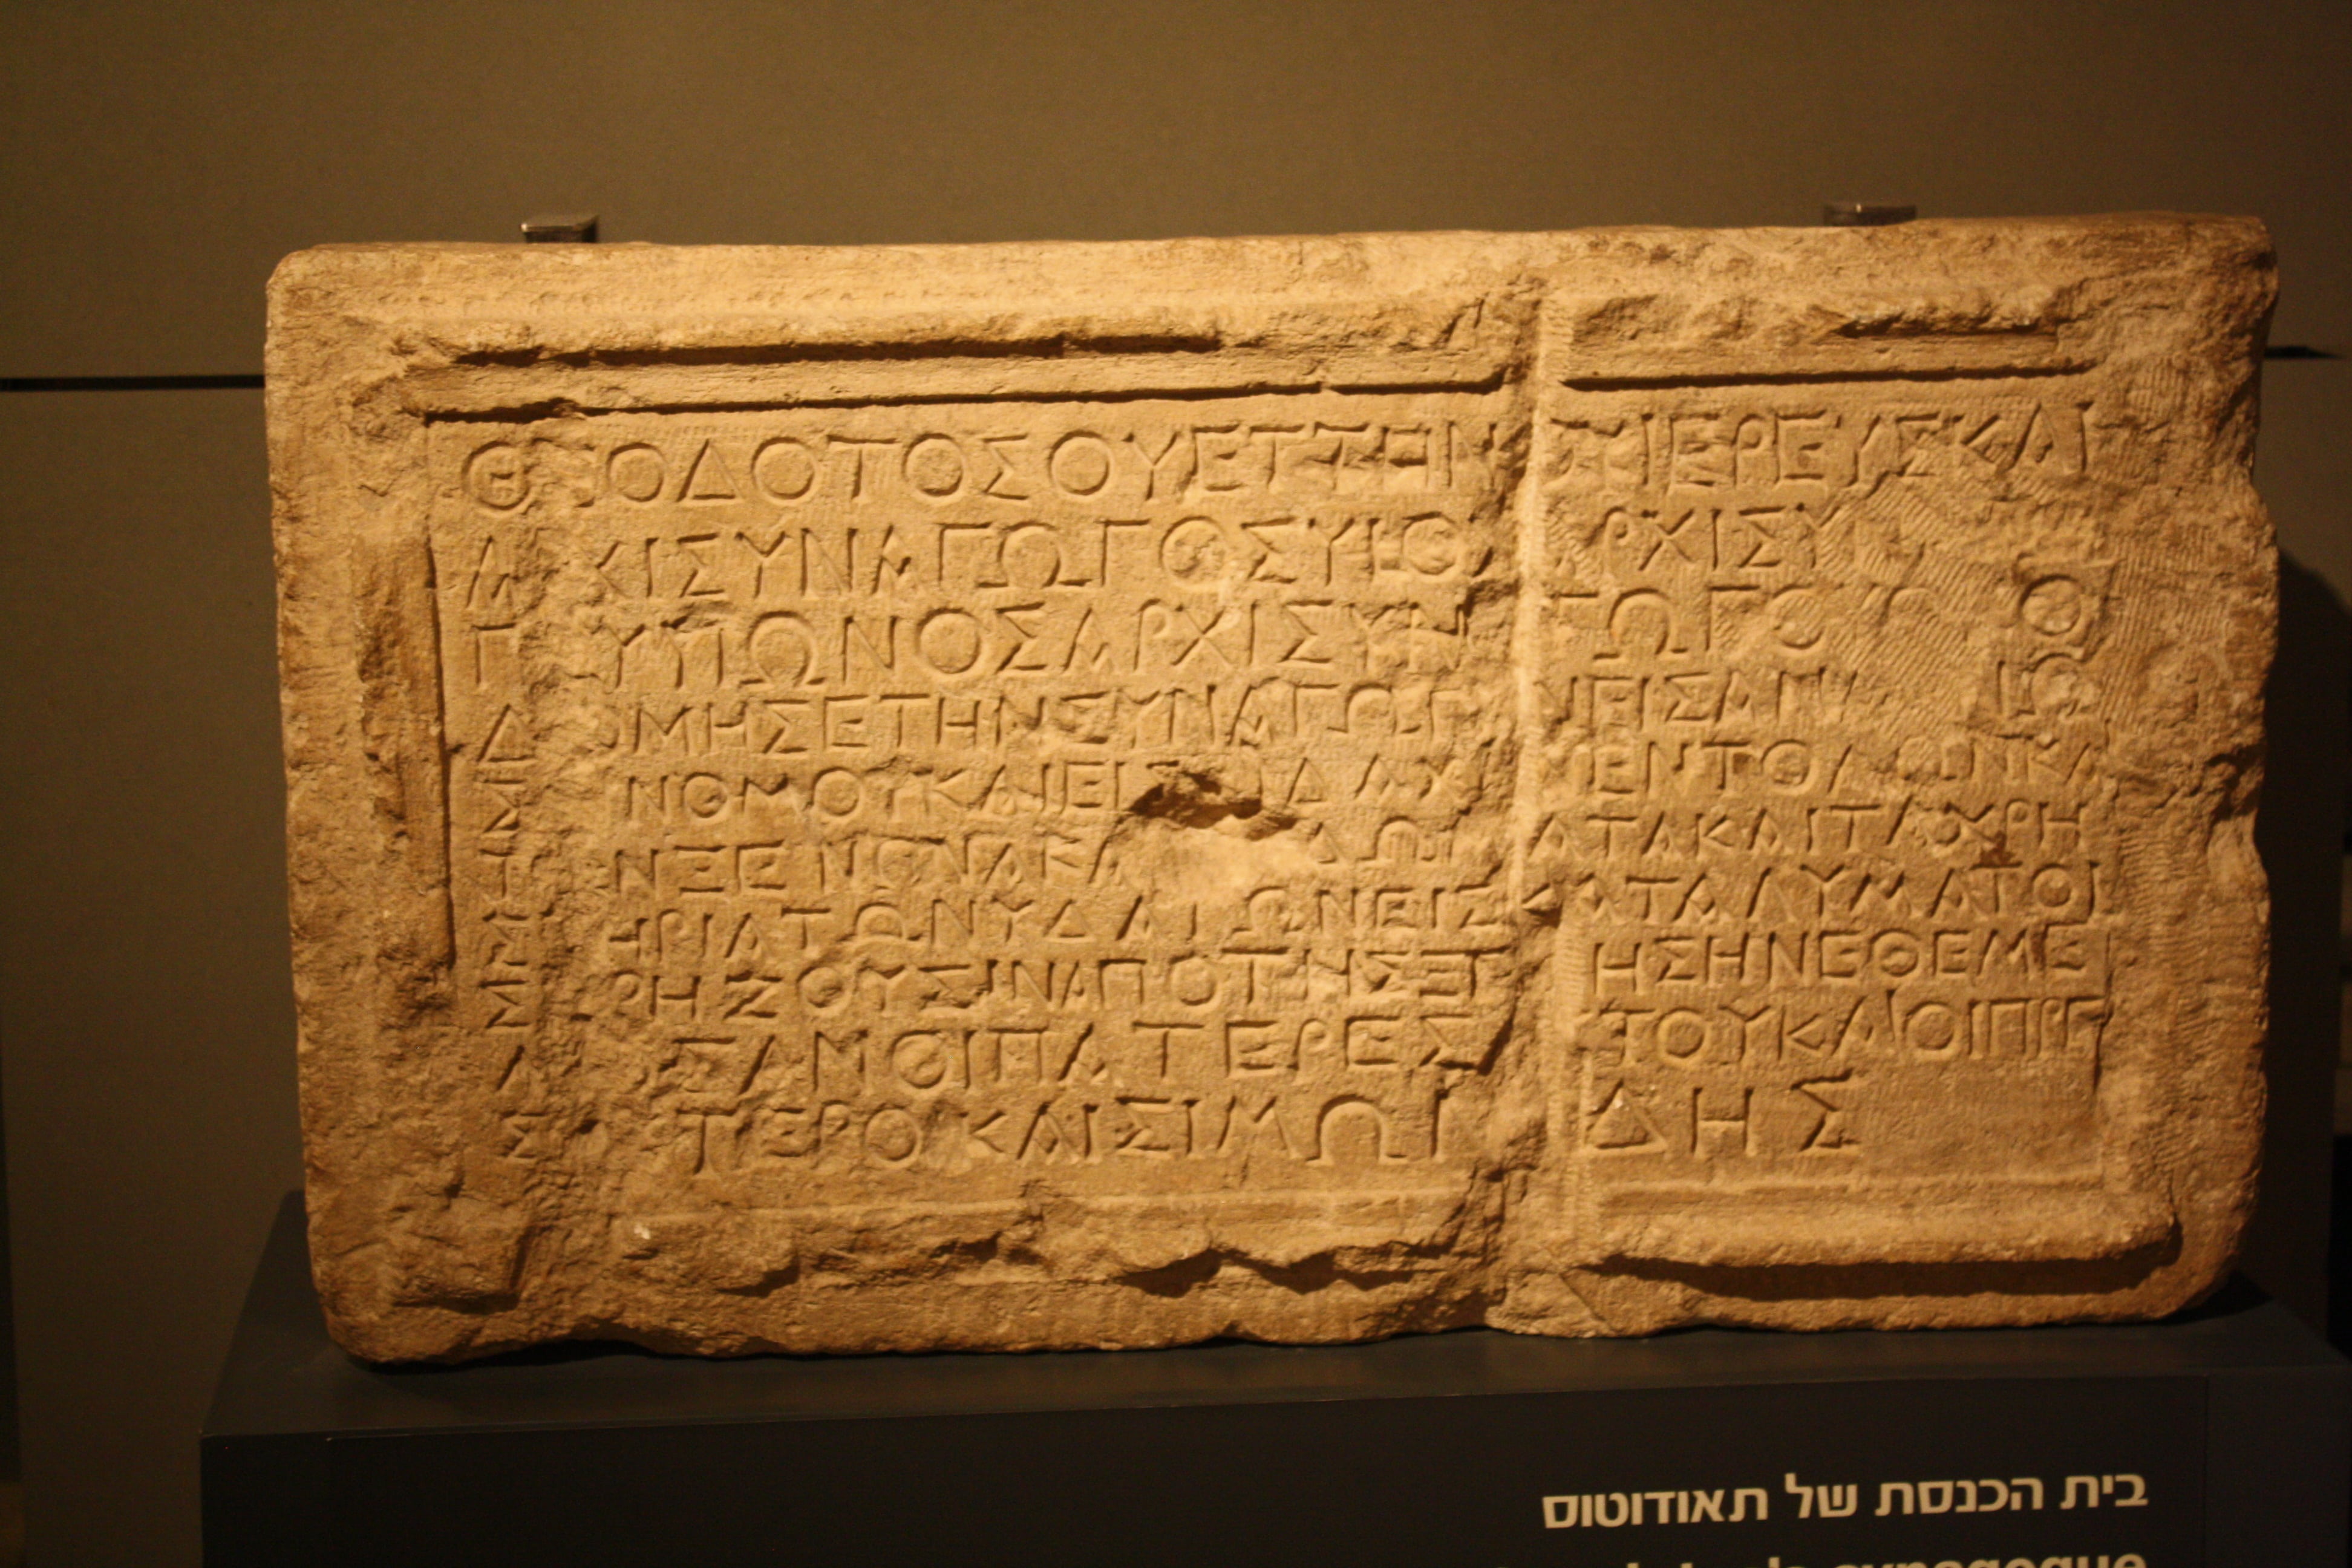 ΘΕΟΔΟΤΟΣΟΥΕΤΤΗΝΟΥΙΕΡΕΥΣΚΑΙ
ΑΡΧΙΣΥΝΑΓΩΓΟΣΥΙΟΣΑΡΧΙΣΥ
ΓΟΥΥΙΩΝΟΣΑΡΧΙΣΥΝΑΓΩΓΟΥ Ο
ΔΟΜΗΣΕΤΗΝΣΥΝΑΓΩΓΗΝΕΙΣΑΝΑΓΝΩ
ΝΟΜΟΥΚΑΙΕΙΣ ΔΙΔΑΧΗΝΕΝΤΟΛΩΝΚΑΙ
ΤΟΝΞΕΝΩΝΑΚΑ ΔΩΜΑΤΑΚΑΙΤΑΧΡΗ
ΣΤΗΡΙΑΤΩΝΥΔΑΤΩΝΕΙΣΚΑΤΑΛΥΜΑΤΟΙ
ΧΡΗΖΟΥΣΙΝΑΠΟΤΗΣΞΕ ΗΣΗΝΕΘΕΜΕ
ΛΙΩΣΑΝΟΙΠΑΤΕΡΕΣ ΤΟΥΚΑΙΟΙΠΡΕ
Σ ΤΕΡΟΙΚΑΙΣΙΜΩΝΙΔΗΣ
בית הכנסת של תאודוטוס